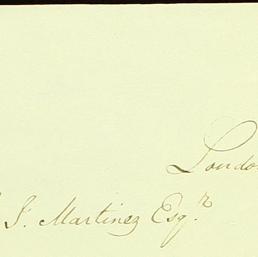 Londo
J. Martinez Esq.r